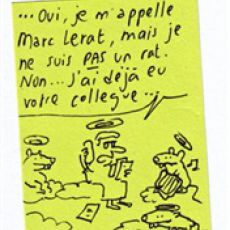 ... Oui, je m'appelle
Marc Lerat, mais je
ne suis PAS un rat.
Non... J'ai déjà eu
votre collegue...